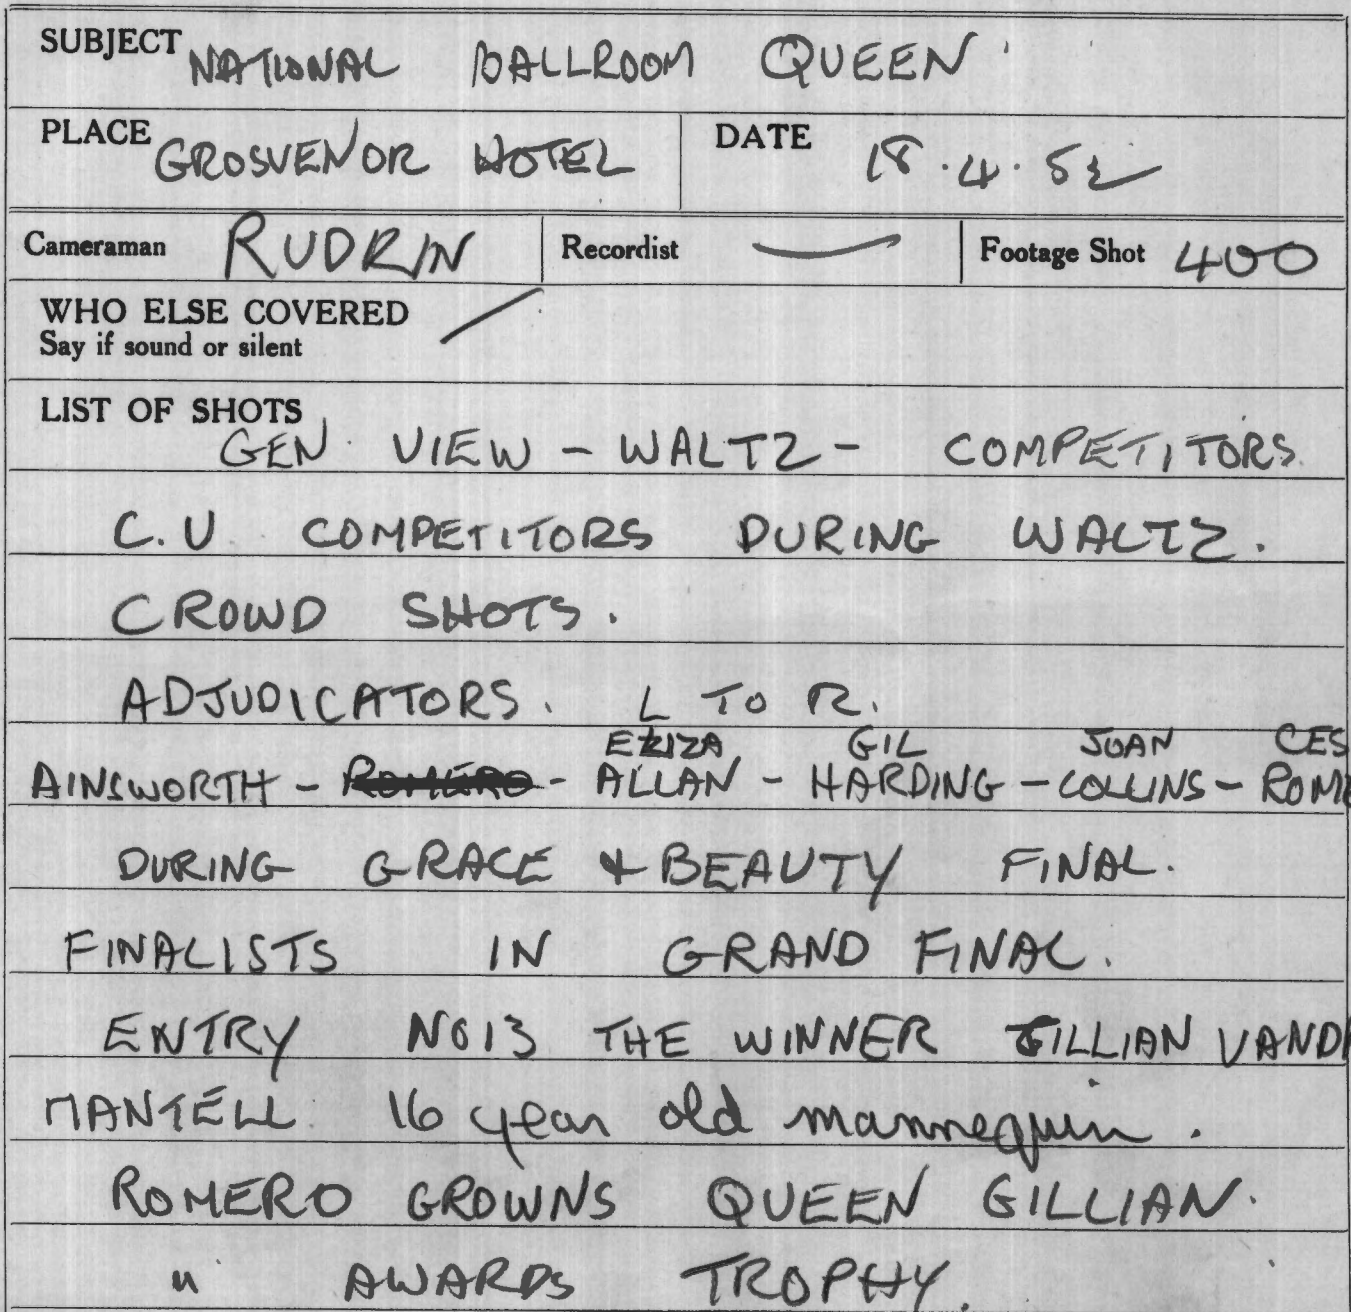 SUBJECT NATIONAL BALLROOM QUEEN
PLACE GROSVENOR HOTEL DATE 18.4.52
Cameraman RUDKIN Recordist — Footage Shot 400
WHO ELSE COVERED
Say if sound or silent
LIST OF SHOTS
GEN VIEW - WALTZ - COMPETITORS
C.U COMPETITORS DURING WALTZ.
CROWD SHOTS.
ADJUDICATORS. L TO R.
GIL JOAN CES
AINSWORTH - ROMERO - ALLAN - HARDING - COLLINS - ROME
DURING GRACE & BEAUTY FINAL.
FINALISTS IN GRAND FINAL.
ENTRY NO13 THE WINNER GILLIAN VAND
MANTELL 16 year old mannequin.
ROMERO CROWNS QUEEN GILLIAN.
" AWARDS TROPHY.